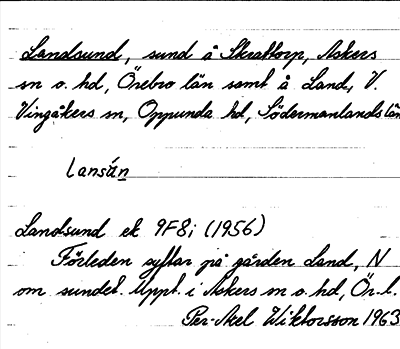 Landsund, sund å Skrattorp, Askers
sn o. hd, Örebro län samt å Land, V.
Vingåkers sn, Oppunda hd, Södermanlands län
Lansún
Landsund ek 9F8i (1956)
Förleden syftar på gården Land, N
om sundet. Uppt. i Askers sn o. hd, Ör. l.
Per-Axel Wiktorsson 1963